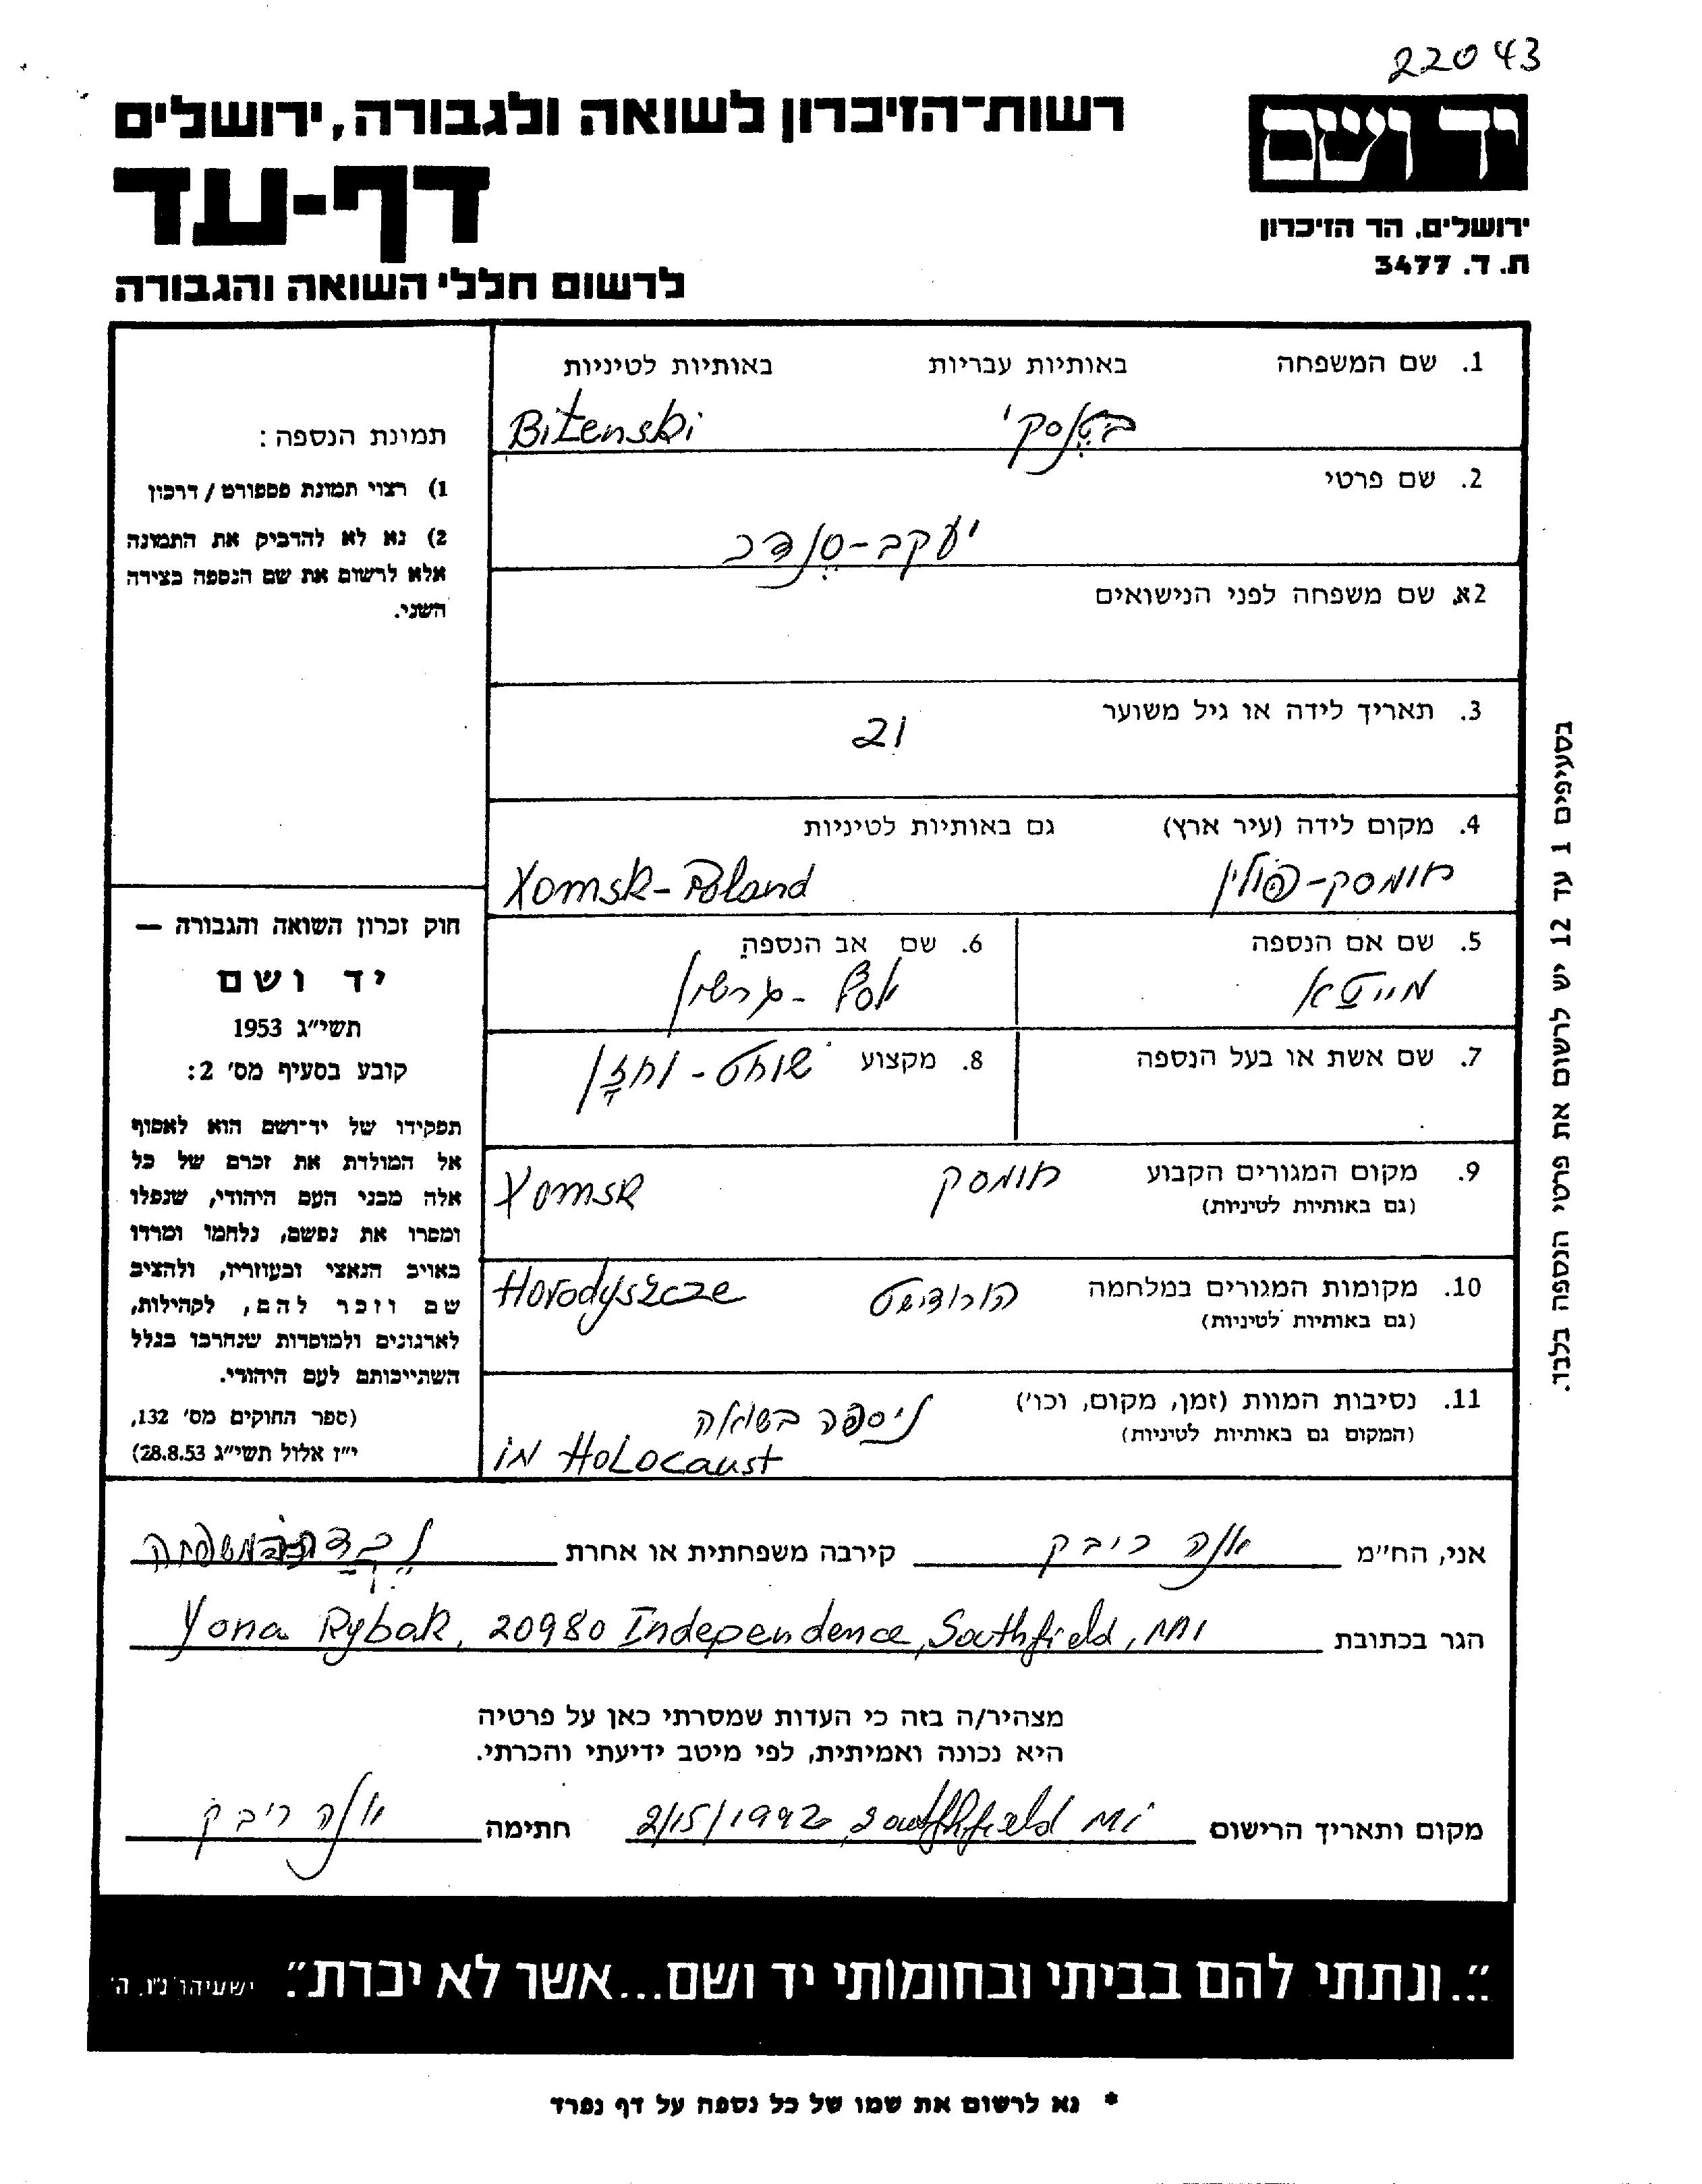 22043
יד ושם
ירושלים, הר הזיכרון
ת. ד. 3477
רשות־הזיכרון לשואה ולגבורה, ירושלים
דף-עד
לרשום חללי השואה והגבורה
1. שם המשפחה באותיות עבריות באותיות לטיניות
Bitenski
2. שם פרטי
יעקב-סנדר
2א. שם משפחה לפני הנישואים
3. תאריך לידה או גיל משוער
21
4. מקום לידה (עיר ארץ) גם באותיות לטיניות
חומסק-פולין Xomsk-Poland
5. שם אם הנספה 6. שם אב הנספה
מייטא
7. שם אשת או בעל הנספה 8. מקצוע שוחט - וחזן
9. מקום המגורים הקבוע חומסק Xomsk
(גם באותיות לטיניות)
10. מקומות המגורים במלחמה הורודישט Horodyszcze
(גם באותיות לטיניות)
11. נסיבות המוות (זמן, מקום, וכו') ניספה בשואה
(המקום גם באותיות לטיניות) in Holocaust
תמונת הנספה:
1) רצוי תמונת פספורט / דרכון
2) נא לא להדביק את התמונה
אלא לרשום את שם הנספה בצידה
השני.
חוק זכרון השואה והגבורה —
יד ושם
תשי״ג 1953
קובע בסעיף מס' 2:
תפקידו של יד־ושם הוא לאסוף
אל המולדת את זכרם של כל
אלה מבני העם היהודי, שנפלו
ומסרו את נפשם, נלחמו ומרדו
באויב הנאצי ובעוזריו, ולהציב
שם וזכר להם, לקהילות,
לארגונים ולמוסדות שנחרבו בגלל
השתייכותם לעם היהודי.
(ספר החוקים מס' 132,
י״ז אלול תשי״ג 28.8.53)
בסעיפים 1 עד 12 יש לרשום את פרטי הנספה בלבד.
אני, הח״מ יונה ריבק קירבה משפחתית או אחרת
הגר בכתובת Yona Rybak, 20980 Independence, Southfield, MI
מצהיר/ה בזה כי העדות שמסרתי כאן על פרטיה
היא נכונה ואמיתית, לפי מיטב ידיעתי והכרתי.
מקום ותאריך הרישום 2/15/1992 Southfield Mi חתימה יונה ריבק
"...ונתתי להם בביתי ובחומותי יד ושם...אשר לא יכרת". ישעיהו נ״ו, ה'
* נא לרשום את שמו של כל נספה על דף נפרד